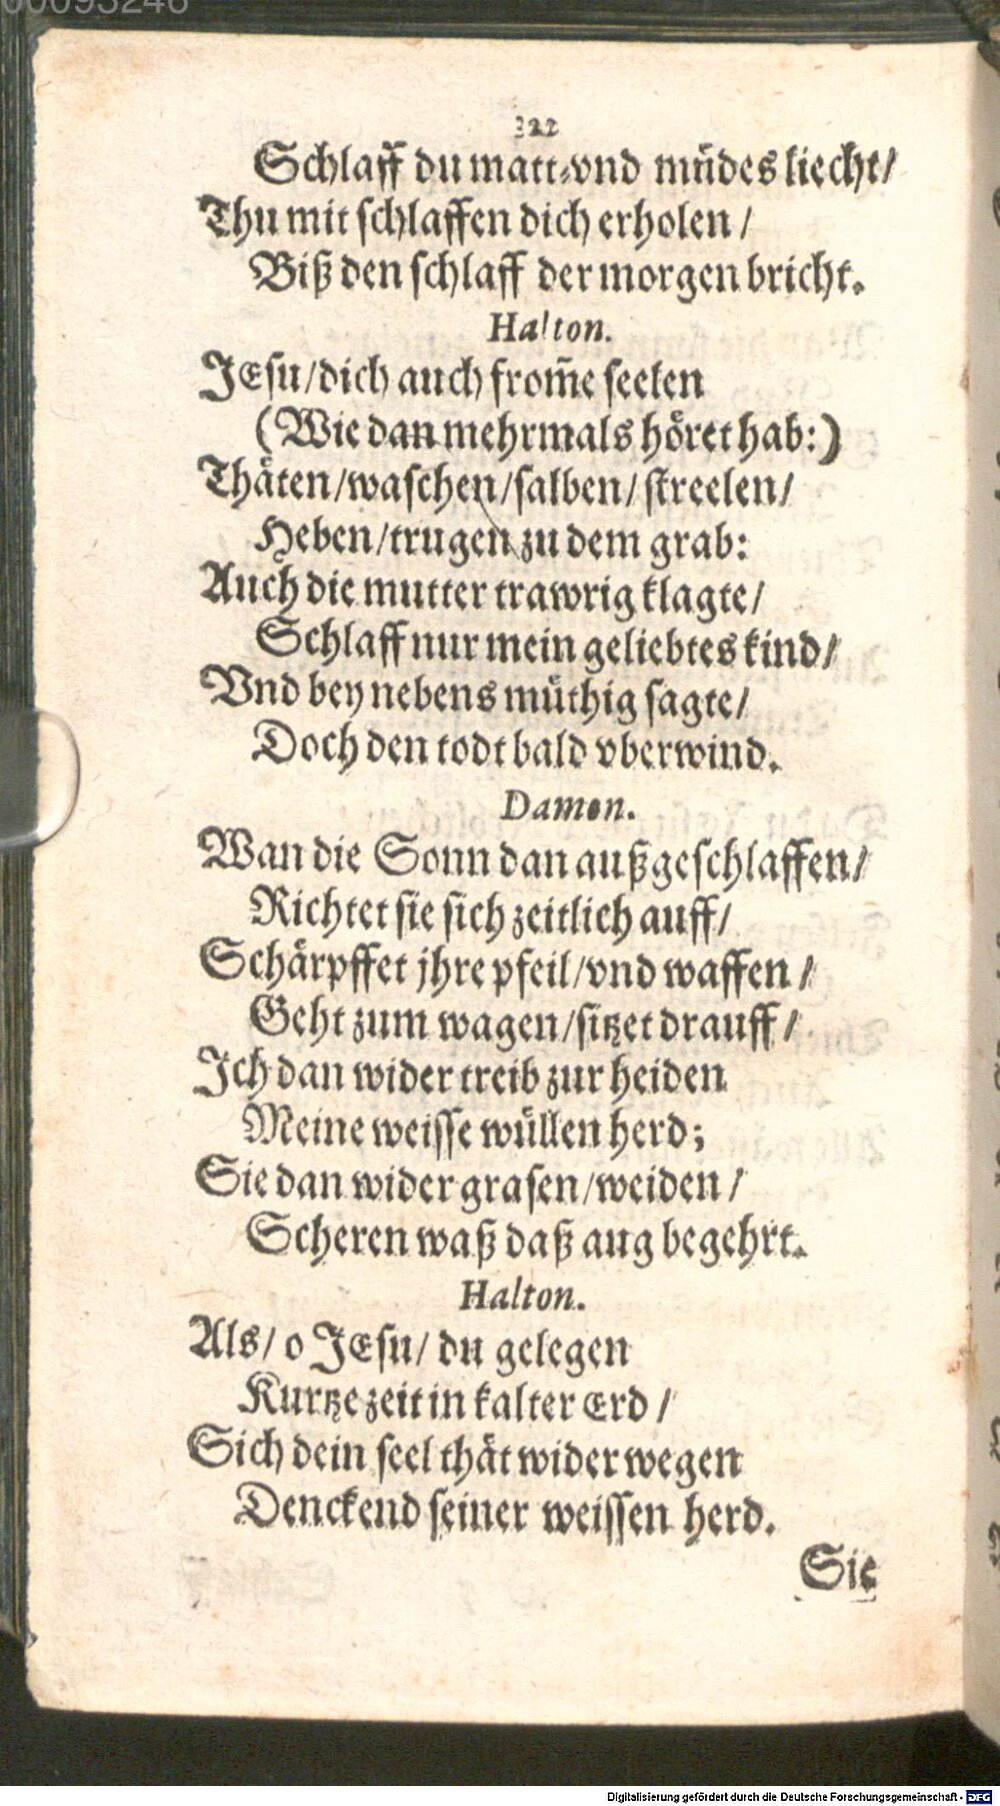 00095246
322
Schlaff du matt-vnd müdes liecht/
Thu mit schlaffen dich erholen/
Biß den schlaff der morgen bricht.
Halton.
JEsu/dich auch from̃e seelen
(Wie dan mehrmals höret hab:)
Thäten/waschen/salben/streelen/
Heben/trugen zu dem grab:
Auch die mutter trawrig klagte/
Schlaff nur mein geliebtes kind/
Vnd bey nebens müthig sagte/
Doch den todt bald vberwind.
Damon.
Wan die Sonn dan außgeschlaffen/
Richtet sie sich zeitlich auff/
Schärpffet jhre pfeil/vnd waffen/
Geht zum wagen/sitzet drauff/
Ich dan wider treib zur heiden
Meine weisse wüllen herd;
Sie dan wider grasen/weiden/
Scheren waß daß aug begehrt.
Halton.
Als/ o JEsu/ du gelegen
Kurtze zeit in kalter Erd/
Sich dein seel thät wider wegen
Denckend seiner weissen herd.
Sie
Digitalisierung gefördert durch die Deutsche Forschungsgemeinschaft - DFG